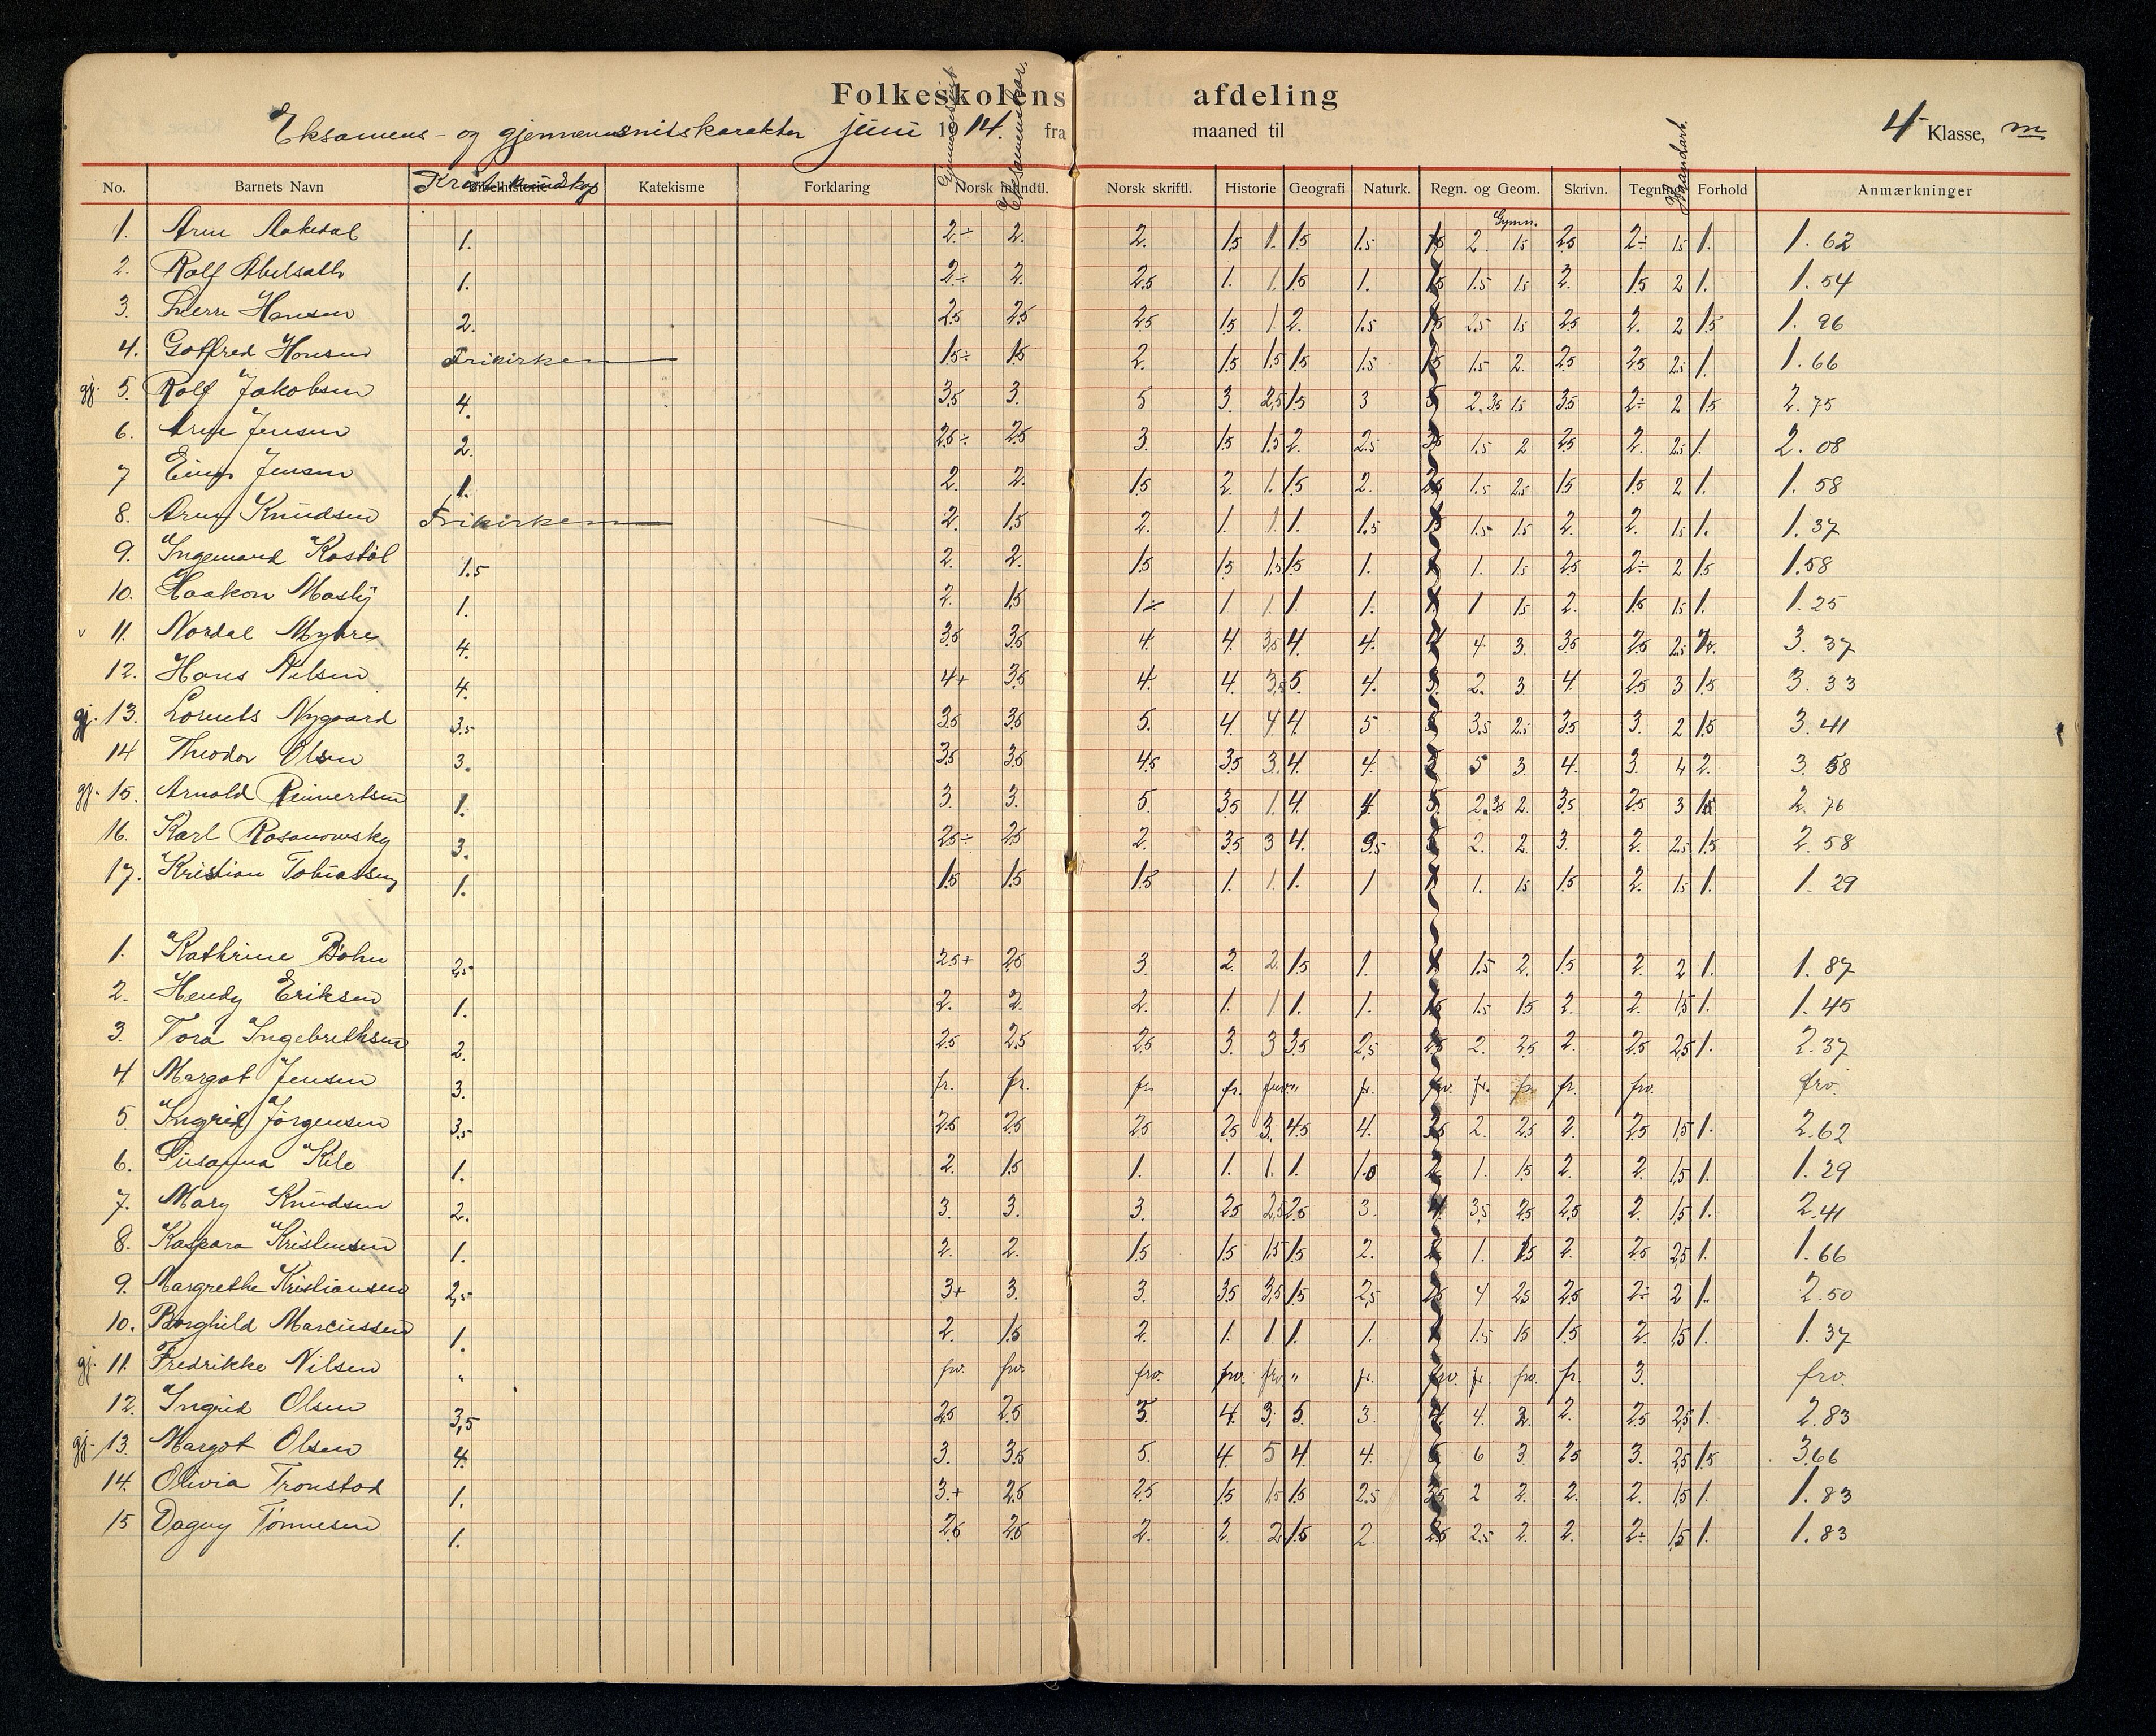 Folkeskolens afdeling
Eksamens- og gjennemsnitskarakter juni 1914. fra maaned til 4 Klasse, m
Gjennemsnit Eksamenskar. Haandarb.
No. Barnets Navn Krist. kundskap Katekisme Forklaring Norsk mundtl. Norsk skriftl. Historie Geografi Naturk. Regn. og Geom. Skrivn. Tegning Forhold Anmærkninger
Gymn.
1. Arne Aakedal 1. 2.÷ 2. 2. 1.5 1. 1.5 1.5 1.5 2. 1.5 2.5 2÷ 1.5 1. 1.62
2. Rolf Abelseth 1. 2÷ 2. 2.5 1. 1. 1.5 1. 1.5 1.5 1.5 2. 1.5 2 1. 1.54
3. Hansen 2. 2.5 2.5 2.5 1.5 1. 2. 1.5 1.5 2.5 1.5 2.5 2. 2 1.5 1.96
4. Gotfred Hansen Frikirken 1.5÷ 1.5 2. 1.5 1.5 1.5 1.5 1.5 1.5 2. 2.5 2.5 2.5 1. 1.66
gj. 5. Rolf Jakobsen 4. 3.5 3. 5 3. 2.5 1.5 3 5 2. 3.5 1.5 3.5 2÷ 2 1.5 2.75
6. Arne Jensen 2. 2.5÷ 2.5 3. 1.5 1.5 2. 2.5 3.5 1.5 2 2.5 2. 2.5 1. 2.08
7 Jensen 1. 2. 2. 1.5 2. 1. 1.5 2. 2.5 1.5 2.5 1.5 1.5 2 1. 1.58
8. Arne Knudsen Frikirken 2. 1.5 2. 1. 1. 1. 1.5 1.5 1.5 1.5 2. 2. 1.5 1. 1.37
9. Ingemand Kastøl 1.5 2. 2. 1.5 1.5 1.5 1.5 1. 1. 1.5 2.5 2÷ 2 1.5 1.58
10. Haakon Mosby 1. 2. 1.5 1÷ 1 1. 1. 1. 1. 1 1.5 2. 1.5 1.5 1. 1.25
v 11. Nordal Myhre 4. 3.5 3.5 4. 4. 3.5 4. 4. 4 4 3. 3.5 2.5 2.5 2. 3.37
12. Hans Nilsen 4. 4+ 3.5 4. 4. 3.5 5. 4. 3. 2. 3. 4. 2.5 3 1.5 3.33
gj. 13. Lorents Nygaard 3.5 3.5 3.5 5. 4. 4 4 5 5 3.5 2.5 3.5 3. 2 1.5 3.41
14 Theodor Olsen 3. 3.5 3.5 4.5 3.5 3. 4. 4. 5 3. 4. 3. 4 2. 3.58
gj. 15. Arnold Reinertsen 1. 3. 3. 5. 3.5 1. 4. 4. 5. 2. 3.5 2. 3.5 2.5 3 1.5 2.76
16. Karl Rosanowsky 3. 2.5÷ 2.5 2. 3.5 3 4. 2. 2. 3. 2. 2.5 1.5 2.58
17. Kristian Tobiassen 1. 1.5 1.5 1.5 1. 1. 1. 1 1 1. 1.5 1.5 2. 1.5 1. 1.29
1. Kathrine Bøhn 2.5 2.5+ 2.5 3 2. 2. 1.5 1. 1 1.5 2. 1.5 2. 2 1. 1.87
2. Hendy Eriksen 1. 2. 2. 2. 1. 1 1. 1. 1.5 1.5 1.5 2. 2. 1.5 1. 1.45
3. Tora Ingebrethsen 2. 2.5 2.5 2.5 3. 3 3.5 2.5 2.5 2. 2.5 2. 2.5 2.5 1. 2.37
4 Margot Jensen 3. fr. fr. fr. fr. frv. " fr. frv. fr. fr. fr. frv. frv.
5. Ingrid Jørgensen 3.5 2.5 2.5 2.5 2.5 3. 4.5 4. 3.5 2. 2.5 2. 2.5 1.5 1. 2.62
6. Susanna Kile 1. 2. 1.5 1. 1. 1. 1. 1.5 2. 1. 1.5 2. 2. 1.5 1. 1.29
7. Mary Knudsen 2. 3. 3. 3. 2.5 2.5 2.5 3. 4. 3.5 2.5 2.5 2. 1.5 1. 2.41
8. Kaspara Kristensen 1. 2. 2. 1.5 1.5 1.5 1.5 2. 2 1. 1.5 2. 2.5 2.5 1. 1.66
9. Margrethe Kristiansen 2.5 3+ 3. 3. 3.5 3.5 1.5 2.5 2.5 4 2.5 2.5 2÷ 2 1. 2.50
10. Borghild Marcussen 1. 2. 1.5 2. 1. 1 1. 1. 1 1.5 1.5 1.5 2. 1.5 1. 1.37
gj. 11. Fredrikke Nilsen " frv. frv. frv. frv. frv. " fr. frv. fr. frv. fr. 3. frv.
12. Ingrid Olsen 3,5 2.5 2.5 5. 4. 3. 5. 3. 4. 4. 2. 2. 2.5 2.5 1. 2.83
gj. 13. Margot Olsen 4. 3. 3.5 5. 4. 5 4. 4. 6 6 3. 2.5 3. 2.5 1.5 3.66
14. Olivia Tronstad 1. 3.+ 2.5 2.5 1.5 1.5 1.5 2.5 3.5 2 2. 2. 2. 1.5 1. 1.83
15 Dagny Tønnesen 1. 2.5 2.5 2. 2. 2 1.5 2. 2.5 2.5 2. 2. 2÷ 1.5 1. 1.83